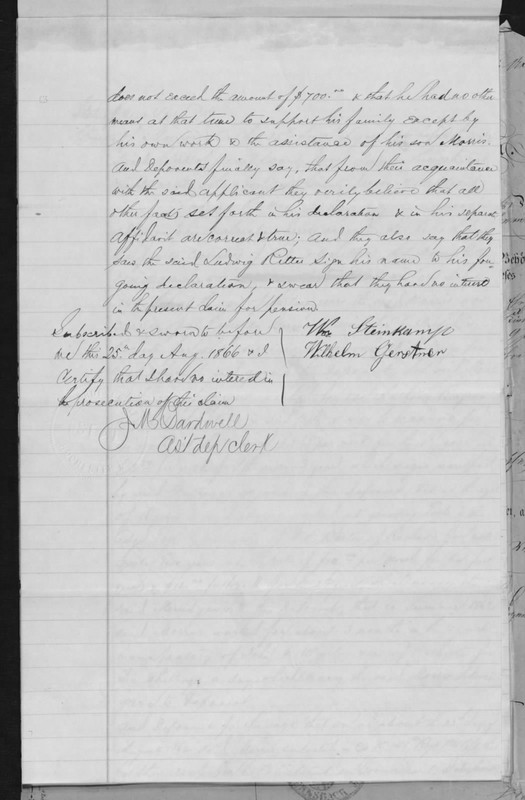 does not exceed the amount of $700.00 & that he had no other
means at that time to support his family except by
his own work & the assistance of his son Morris.
And deponents finally say, that from their acquaintance
with the said applicant they verily believe that all
other facts set forth in his declaration & in his separate
affidavit are correct & true; And they also say that they
saw the said Ludwig Ritter sign his name to his fore-
going declaration, & swear that they have no interest
in the present claim for pension
Subscribed & sworn to before
me this 25th day Aug. 1866 & I
certify that I have no interest in
the prosecution of this claim
Wm Steinkamp
Wilhelm Gerstner
J M
Ast dep clerk